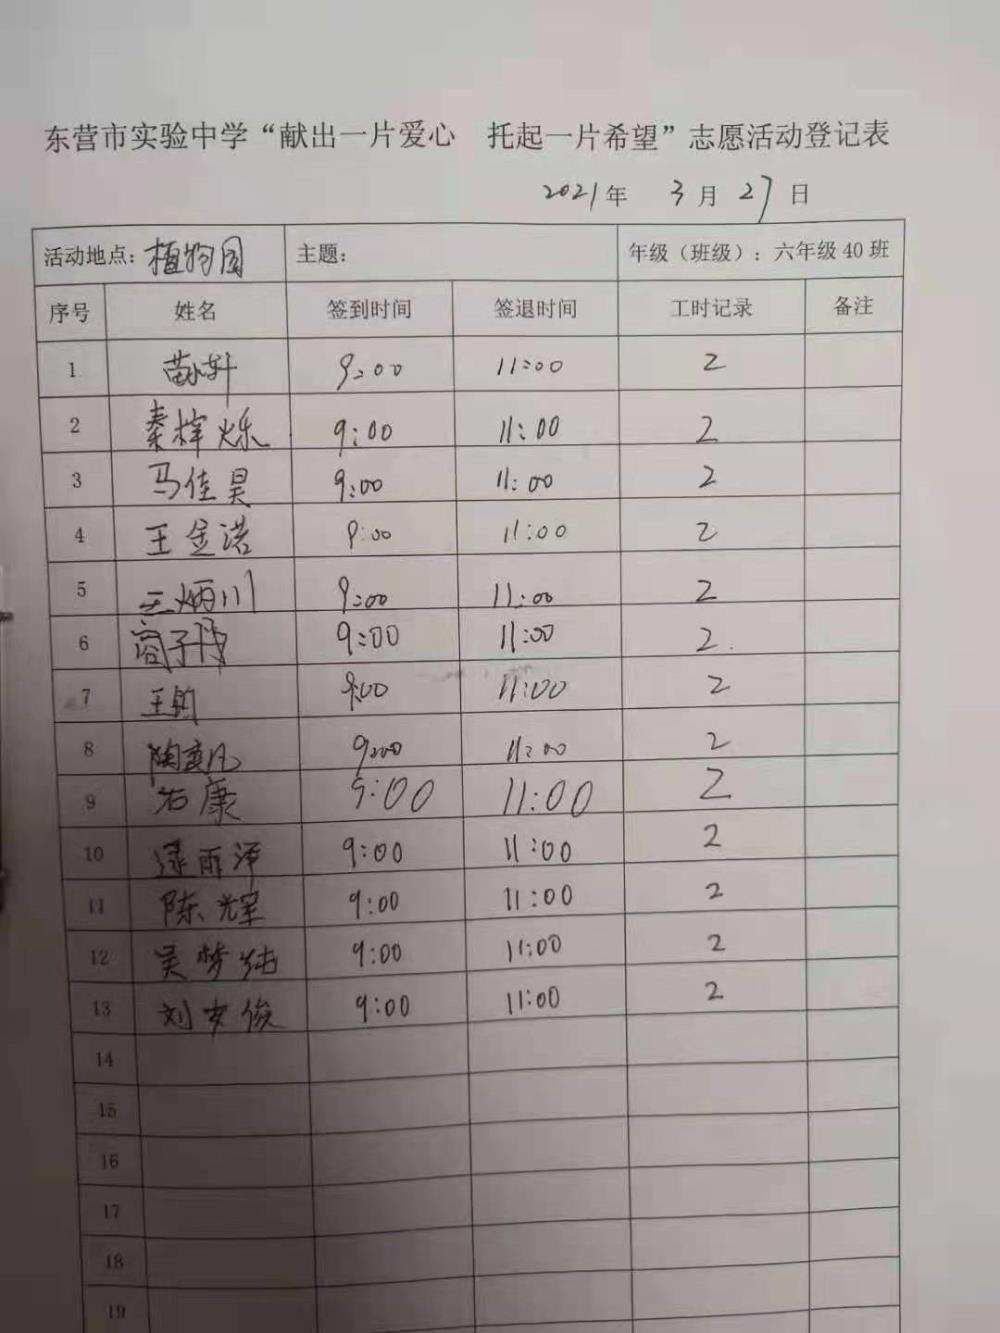 东营市实验中学“献出一片爱心 托起一片希望”志愿活动登记表
2021年 3月 27日
活动地点：植物园 主题： 年级（班级）：六年级40班
序号 姓名 签到时间 签退时间 工时记录 备注
1 9:00 11:00 2
2 秦梓烁 9:00 11:00 2
3 马佳昊 9:00 11:00 2
4 王金诺 9:00 11:00 2
5 王炳川 9:00 11:00 2
6 商子博 9:00 11:00 2
7 王钧 9:00 11:00 2
8 陶奕凡 9:00 11:00 2
9 石康 9:00 11:00 2
10 雨泽 9:00 11:00 2
11 陈光军 9:00 11:00 2
12 吴梦纯 9:00 11:00 2
13 刘文俊 9:00 11:00 2
14
15
16
17
18
19